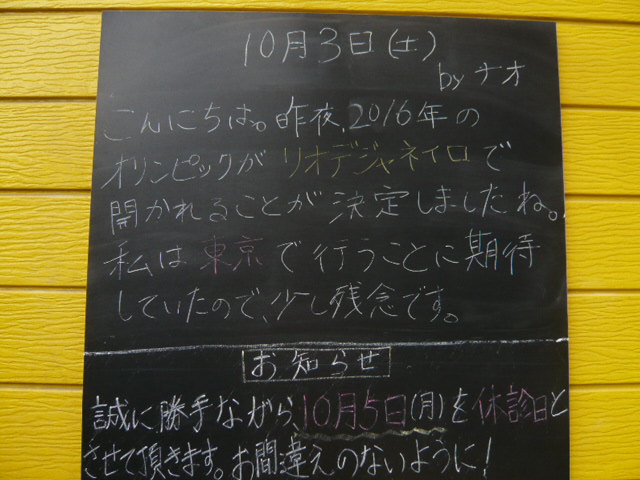 10月3日(土)
by ナオ
こんにちは。昨夜、2016年の
オリンピックが リオデジャネイロで
開かれることが 決定しましたね。
私は 東京で行うことに期待
していたので、少し残念です。
お知らせ
誠に勝手ながら、10月5日(月)を休診日と
させて頂きます。お間違えのないように!